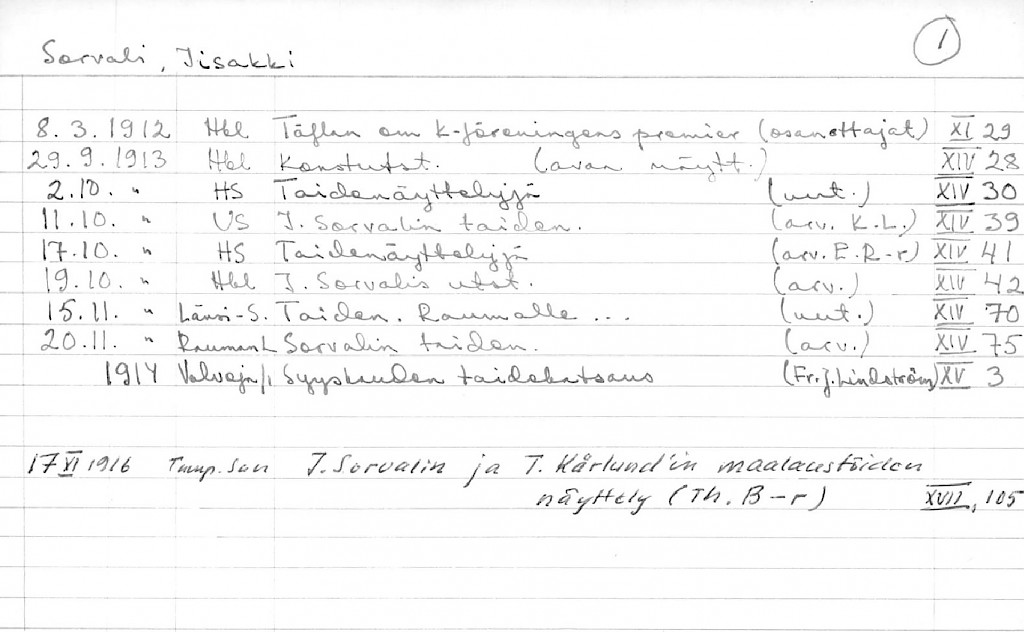 1
Sorvali, Iisakki
8. 3. 1912 Hbl Täflan om K-föreningens premier (osanottajat) XI 29
29. 9. 1913 Hbl Konstutst. (avan näytt.) XIV 28
2.10. " HS Taidenäyttelyjä (uut.) XIV 30
11.10. " US I. Sorvalin taiden. (arv. K.L.) XIV 39
17.10. " HS Taidenäyttelyjä (arv. E.R-r) XIV 41
19.10. " Hbl I. Sorvalis utst. (arv.) XIV 42
15.11. " Länsi-S. Taiden. Raumalle ... (uut.) XIV 70
20.11. " Rauman L Sorvalin taiden. (arv.) XIV 75
1914 Valvoja/, Syyskauden taidekatsaus (Fr. J. Lindström) XV 3
17 VI 1916 Tmp. San I. Sorvalin ja T. Kårlund'in maalaustöiden
näyttely (Th. B-r) XVII, 105